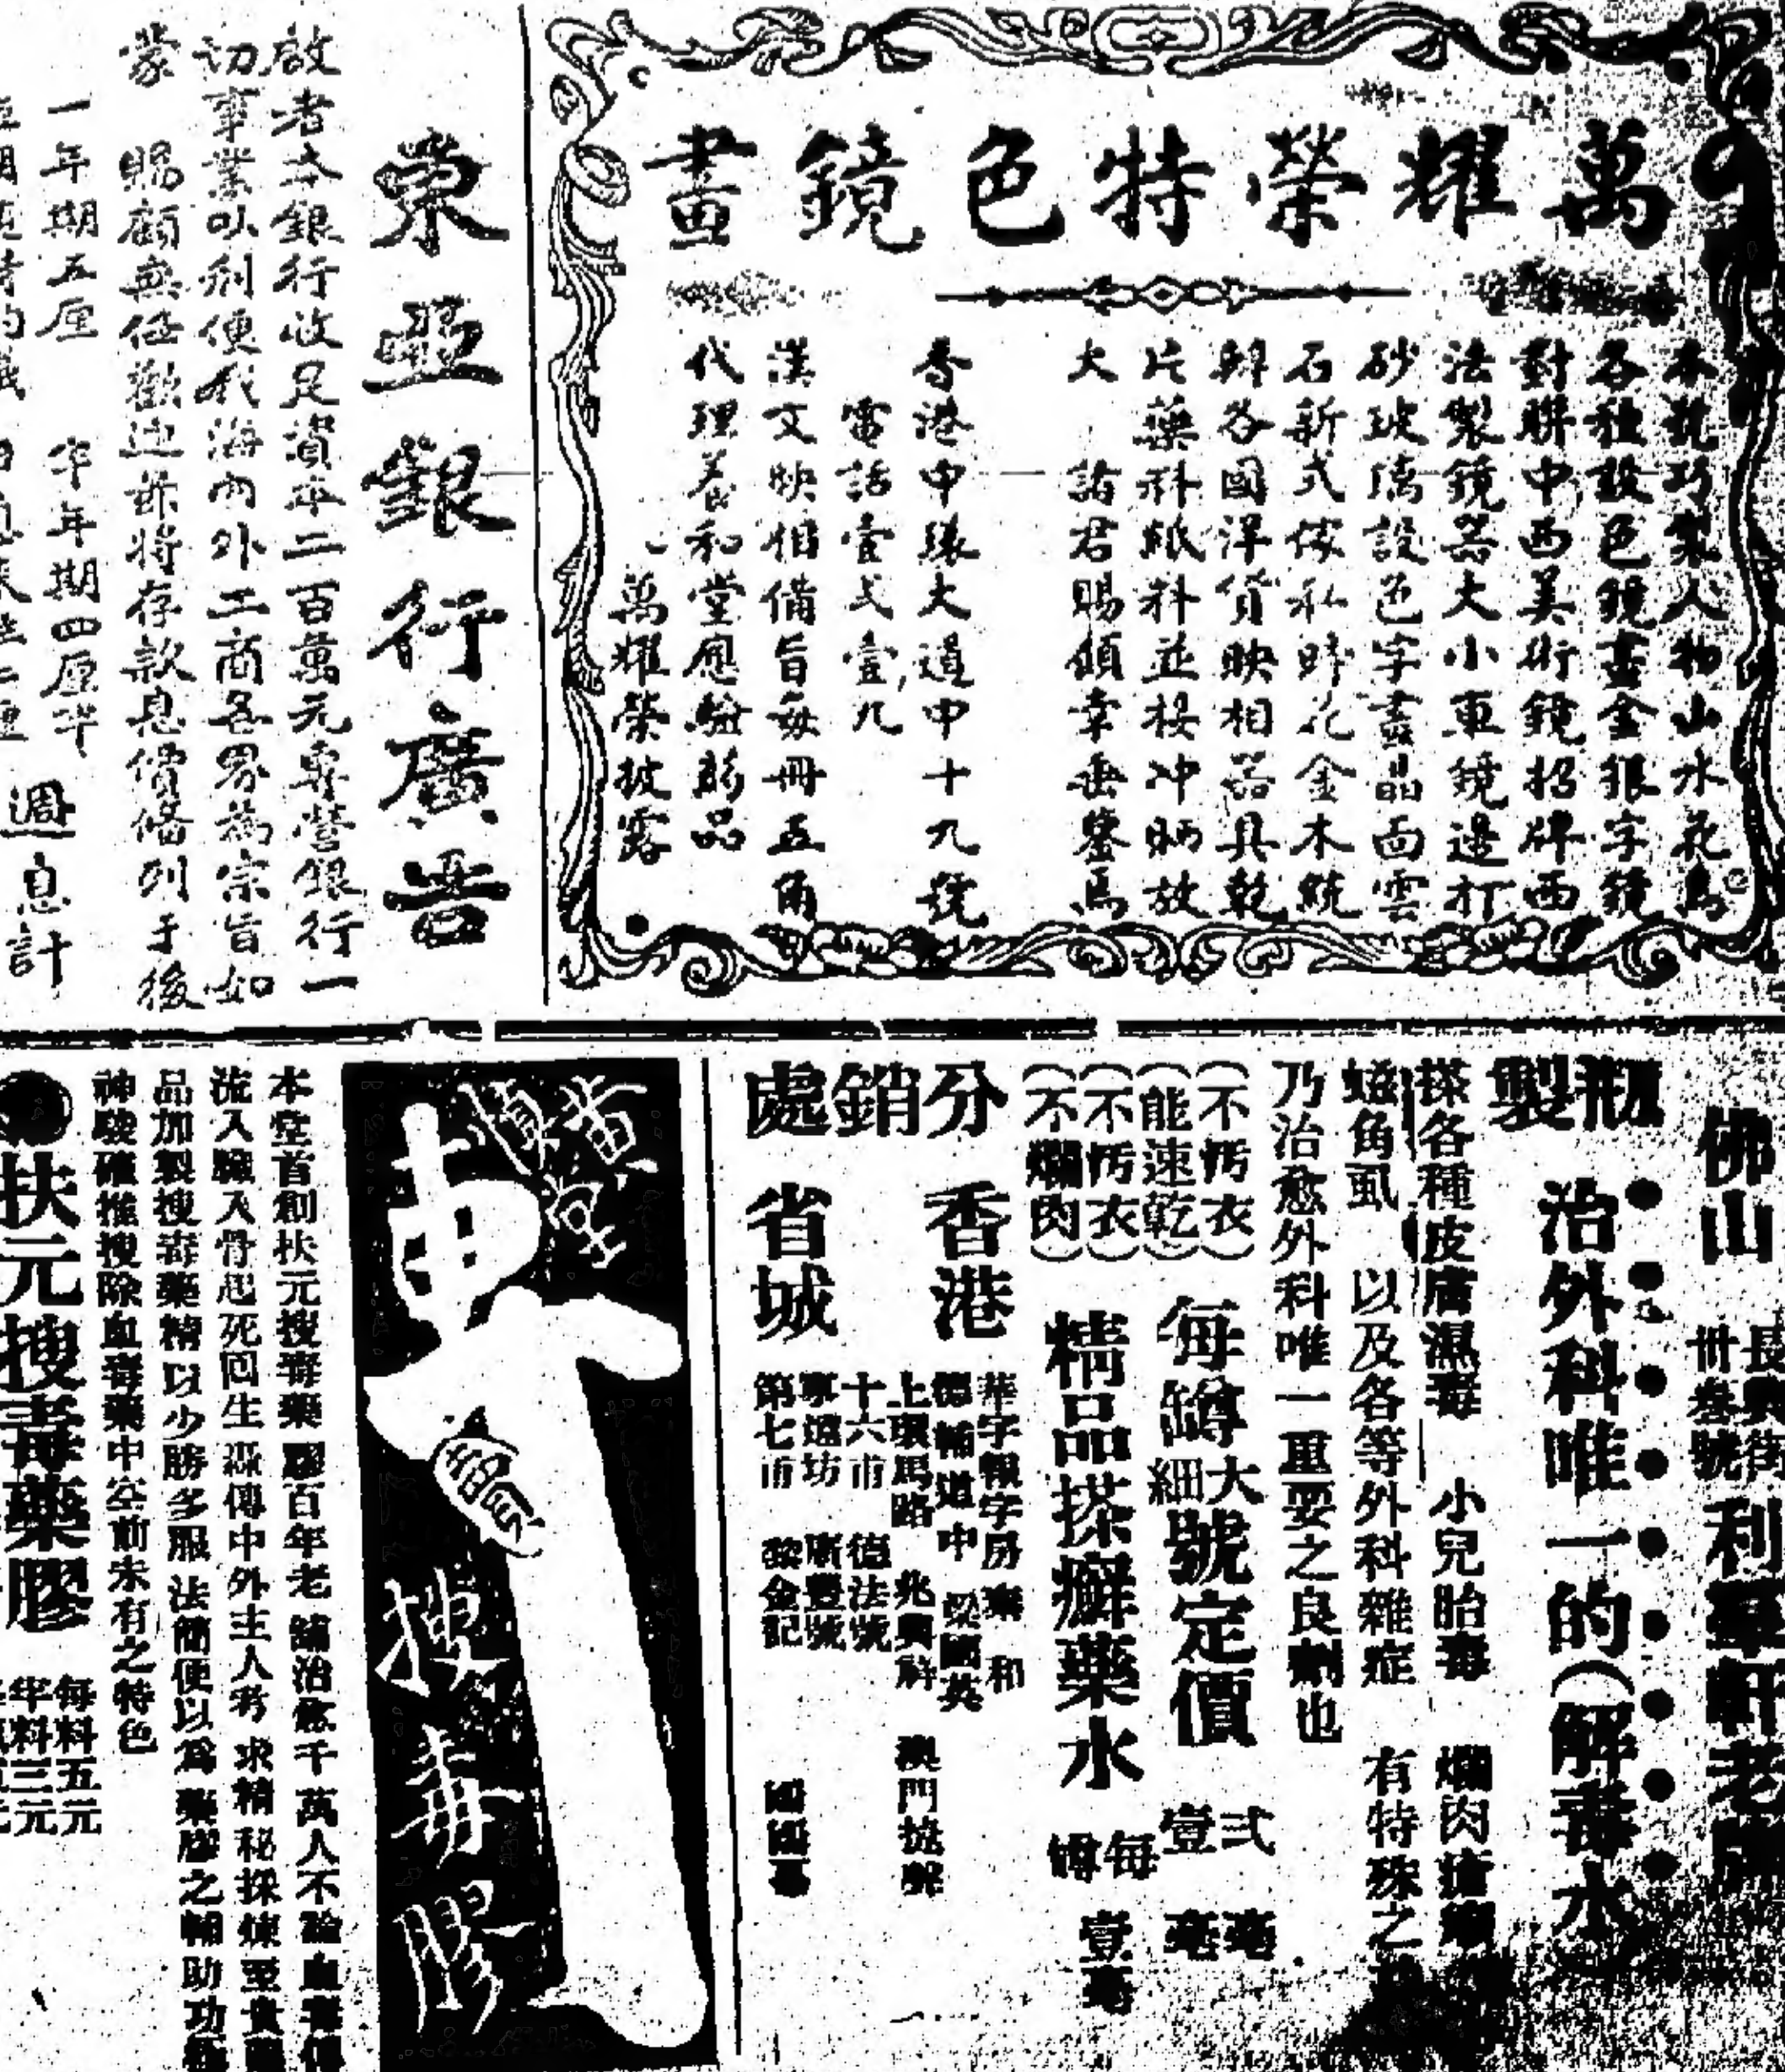 萬耀榮特色鏡畫
本號巧製人物山水花鳥
各種設色鏡畫金銀字鏡
對聯中西美術鏡招牌西
法製鏡器大小車鏡邊打
砂玻璃設色字畫晶面雲
石新式傢私時花金木鏡
各國洋貨映相器具乾
片藥料紙料並接冲晒放
大　諸君賜顧幸垂鑒焉
香港中環大道中十九號
電話壹弍壹九
漢文映相備旨每冊五角
代理養和堂應驗藥品
萬耀榮披露
東亞銀行廣告
啟者本銀行收足資本二百萬元專營銀行一
切事業以利便我海內外工商各界為宗旨如
蒙　賜顧無任歡迎茲將存款息價俻列于後
一年期五厘　半年期四厘半
週息計
佛山　長興街卅叁號　利
瓶製　治外科唯一的（解毒水
搽各種皮膚濕毒　小兒胎毒　爛肉瘡
以及各等外科雜症　有特殊之
乃治愈外科唯一重要之良劑也
（不污衣）
（能速乾）
每罇大細號定價　弍毫　壹毫
（不污衣）
（不爛肉）
精品搽癬藥水　每罇壹毫
分銷處
香港
華字報字房
德輔道中　梁國英
上環馬路　兆興祥　澳門
省城
十六甫　德法號
寧遠坊
第七甫　黎金記
搜毒膠
本堂首創扶元搜毒藥膠百年老舖治愈千萬人不論血毒
流入臟入骨起死回生 中外主人考求精秘採煉至貴
品加製搜毒藥精以少勝多服法簡便以為藥膠之輔助功
神駿確推搜除血毒藥中空前未有之特色
扶元搜毒藥膠
每料五元
半料三元